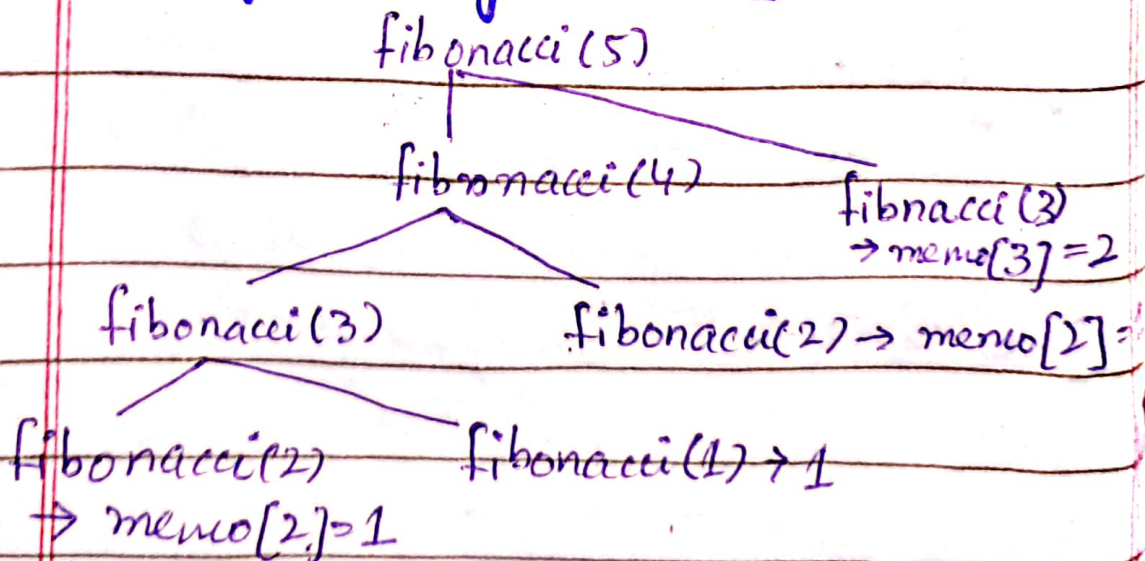 fibonacci (5)
fibonacci (4)
fibnacci (3)
→ memo[3] = 2
fibonacci (3)
fibonacci(2) → memo[2] =
fibonacci(2)
fibonacci (1) → 1
→ memo[2] = 1